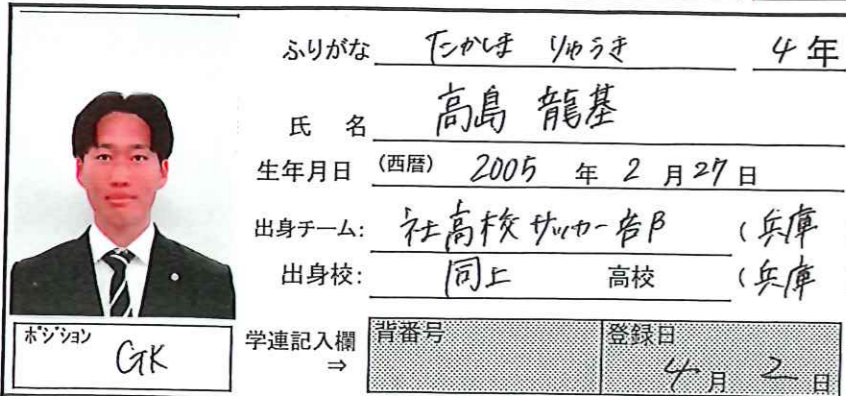 ふりがな たかしま りゅうき 4年
氏 名 高島 龍基
生年月日 (西暦) 2005 年 2 月 27 日
出身チーム: 社高校サッカー部 (兵庫
出身校: 同上 高校 (兵庫
ポジション GK
学連記入欄 ⇒
背番号
登録日 4月 2日